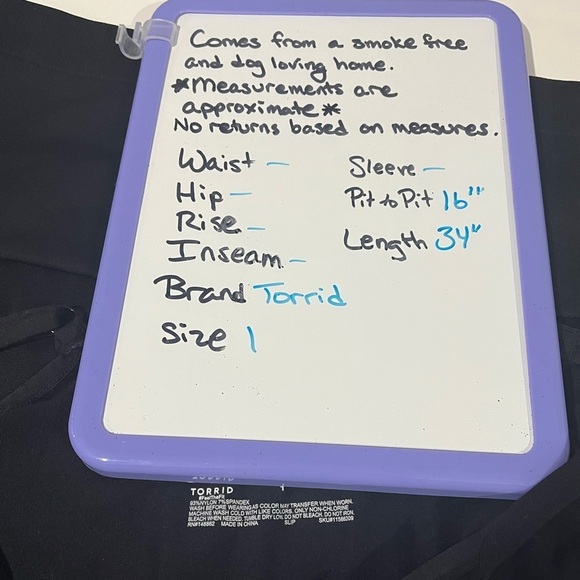 Comes from a smoke free
and dog loving home.
*Measurements are
approximate*
No returns based on measures.
Waist -
Hip -
Rise -
Inseam -
Sleeve -
Pit to Pit 16"
Length 34"
Brand Torrid
Size 1
TORRID
#FeelTheFit
93%NYLON 7%SPANDEX
WASH BEFORE WEARING AS COLOR MAY TRANSFER WHEN WORN.
MACHINE WASH COLD WITH LIKE COLORS. ONLY NON-CHLORINE
BLEACH WHEN NEEDED. TUMBLE DRY LOW. DO NOT BLEACH. DO NOT IRON.
RN#148862 MADE IN CHINA SLIP